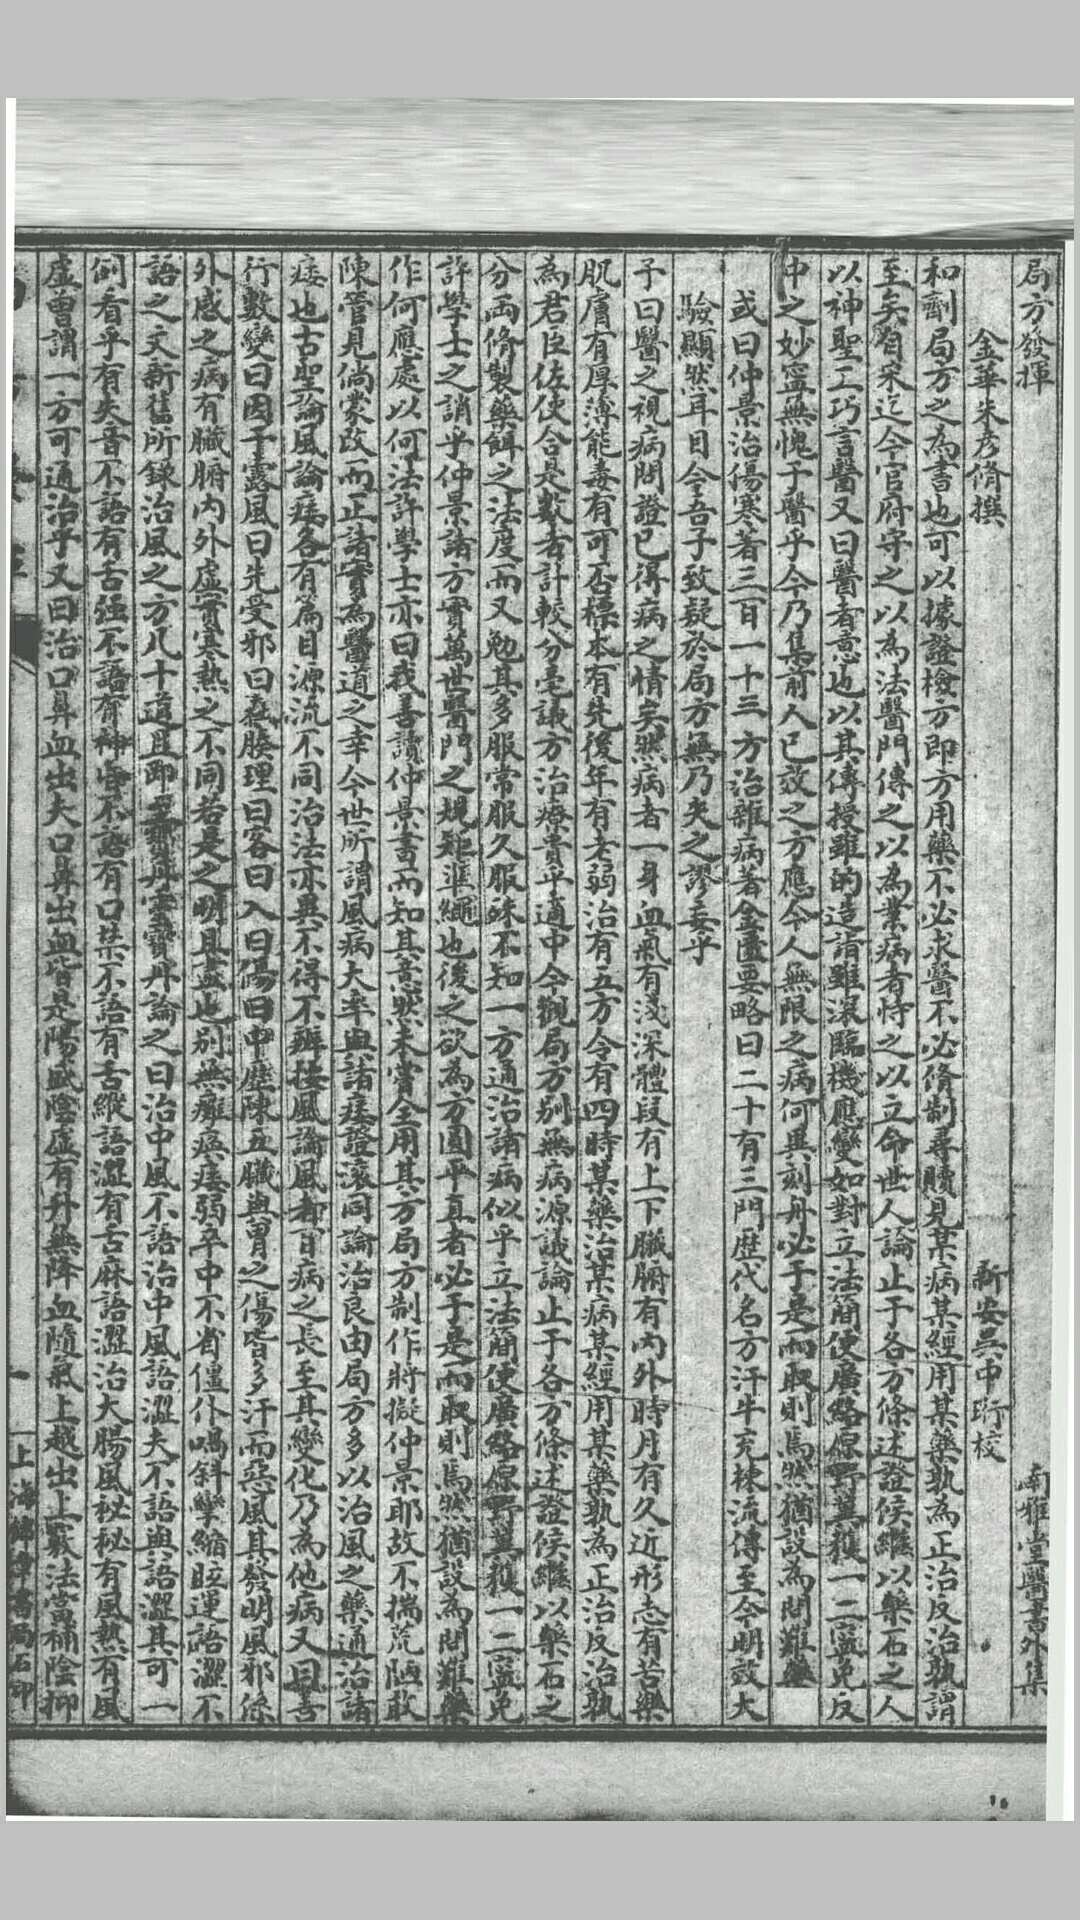 局方發揮　南雅堂醫書外集
金華朱彥脩撰　新安吳中珩校
和劑局方之為書也可以據證檢方即方用藥不必求醫不必脩制尋贖見某病某經用某藥孰為正治反治孰謂
至矣自宋迄今官府守之以為法醫門傳之以為業病者恃之以立命世人論止于各方條述證侯繼以藥石之人
以神聖工巧言醫又曰醫者意也以其傳授雖的造詣雖深臨機應變如對立法簡便廣絡原野冀穫一二寧免反
中之妙寧無愧于醫乎今乃集前人已效之方應今人無限之病何異刻舟必于是而取則焉然猶設為問難藥
或曰仲景治傷寒著三百一十三方治雜病著金匱要略曰二十有三門歷代名方汗牛充棟流傳至今明效大
驗顯然耳目今吾子致疑於局方無乃失之謬妄乎
予曰醫之視病問證已得病之情矣然病者一身血氣有淺深體段有上下臟腑有內外時月有久近形志有苦樂
肌膚有厚薄能毒有可否標本有先後年有老弱治有五方令有四時某藥治某病某經用某藥孰為正治反治孰
為君臣佐使合是數者計較分毫議方治療貴乎適中今觀局方別無病源議論止于各方條述證侯繼以藥石之
分兩脩製藥餌之法度而又勉其多服常服久服殊不知一方通治諸病似乎立法簡便廣絡原野冀穫一二寧免
許學士之誚乎仲景諸方實萬世醫門之規矩準繩也後之欲為方圓平直者必于是而取則焉然猶設為問難藥
作何應處以何法許學士亦曰我善讀仲景書而知其意然未嘗全用其方局方制作將擬仲景耶故不揣荒陋敢
陳管見倘蒙改而正諸實為醫道之幸今世所謂風病大率與諸痿證滾同論治良由局方多以治風之藥通治諸
痿也古聖論風論痿各有篇目源流不同治法亦異不得不辨按風論風者百病之長至其變化乃為他病又曰善
行數變曰因于露風曰先受邪曰在腠理曰客曰入曰傷曰中歷陳五臟與胃之傷皆多汗而惡風其發明風邪係
外感之病有臟腑內外虛實寒熱之不同若是之明且盡也別無癱瘓痿弱卒中不省僵仆喎斜攣縮眩運語澀不
語之文新舊所錄治風之方凡十道且即至聖丹靈寶丹論之曰治中風不語治中風語澀夫不語與語澀其可一
例看乎有失音不語有舌強不語有神昏不語有口禁不語有舌縱語澀有舌麻語澀治大腸風秘秘有風熱有風
虛曾謂一方可通治乎又曰治口鼻血出夫口鼻出血皆是陽盛陰虛有升無降血隨氣上越出上竅法當補陰抑
一　上海　書局石印